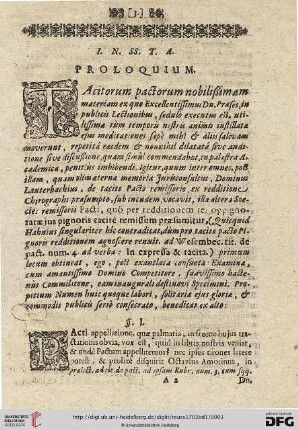 [3.]
I. N. SS. T. A.
PROLOQUIUM.
TAcitorum pactorum nobilissimam
materiam ex quo Excellentissimus Dn. Præses, in
publicis Lectionibus, sedulò executus est, uti-
lissima tùm temporis nostris animis instillata
ejus meditationes sæpè mihi & aliis salivam
moverunt, repetitâ eâdem & nonnihil dilatatâ sive audi-
tione sive discussione, quam simul commendabat, in palæstra A-
cademica, penitiùs imbibendi. Igitur, quum inter omnes, post
illam, quam olim æternæ memoriæ Jurisconsultus, Dominus
Lauterbachius, de tacito Pacto remissorio ex redditione
Chirographi præsumpto, sub incudem vocavit, ista altera Spe-
cies: remissorii Pacti, quò per redditionem rei oppigno-
ratæ jus pignoris taxitè remissum præsumitur, (Quicquid
Hahnius singulariter hic contradicat, dùm pro tacito pacto Pi-
gnoris redditionem agnoscere renuit. ad Wesembec. tit. de
pact. num. 4. ad verba: In expressa & tacita.) primum
locum obtineat, ego, post exantlata consueta Examina,
cum amantissimo Domino Competitore, suavissimo hacte-
nus Commilitone, eam inaugurali destinavi Specimini. Pro-
pitium Numen huic quoque labori, solitariâ ejus gloriâ, &
commodis publicis seriò consecrato, benedicat ex alto!
§. I.
PActi appellatione, quæ palmaria, in fronte hujus tra-
ctationis obvia, vox est, quid in libris nostris veniat,
& unde Pactum appelletur, nec ipsos tirones latere
potest, & probè disquirit Octavius Amorinus, in
prælect. ad tit. de pact. ad ipsam Rubr. num. 3. cum sqq.
A 2
Dn.
http://digi.ub.uni-heidelberg.de/diglit/muns1703bd1/0003
© Universitätsbibliothek Heidelberg
UNIVERSITÄTS-
BIBLIOTHEK
HEIDELBERG